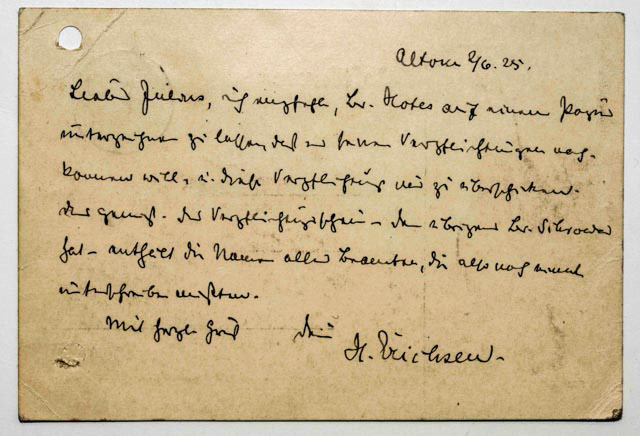 Altona 2/6. 25.
Lieber Julius, ich empfehle, Br. Hotes auf einem Papier
unterzeichnen zu lassen, daß er seinen Verpflichtungen nach-
kommen will, u. diese Verpflichtung mir zu überschicken.
Der - der Verpflichtungsschein - den übrigens Br. Schroeder
hat - enthält die Namen aller Beamten, die also noch einmal
unterschreiben müßten.
Mit herzl. Gruß Dein
H. Erichsen.